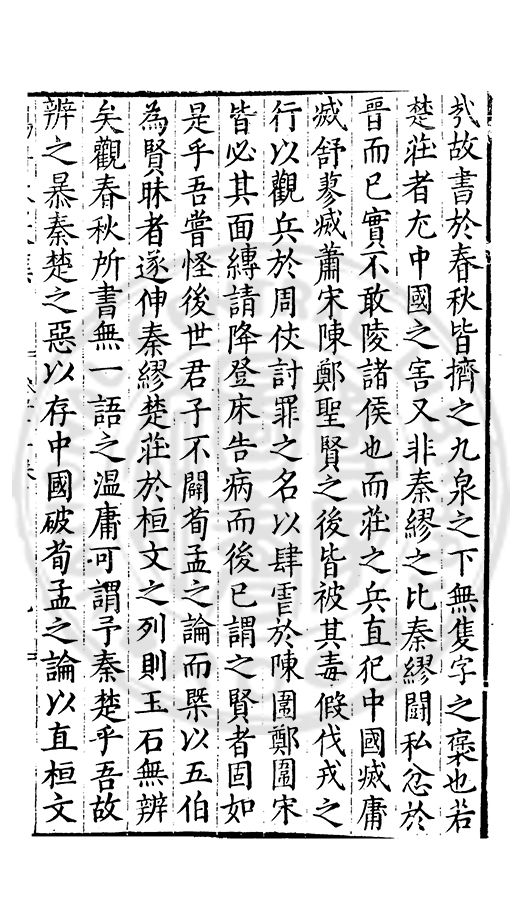 哉故書於春秋皆擠之九泉之下無隻字之襃也若
楚莊者尤中國之害又非秦繆之比秦繆鬪私忿於
晉而已實不敢陵諸侯也而莊之兵直犯中國滅庸
滅舒蓼滅蕭宋陳鄭聖賢之後皆被其毒假伐戎之
行以觀兵於周仗討罪之名以肆雪於陳圍鄭圍宋
皆必其面縛請降登床告病而後已謂之賢者固如
是乎吾嘗怪後世君子不闢荀孟之論而槩以五伯
為賢昧者遂伸秦繆楚莊於桓文之列則玉石無辨
矣觀春秋所書無一語之溫庸可謂予秦楚乎吾故
辨之暴秦楚之惡以存中國破荀孟之論以直桓文